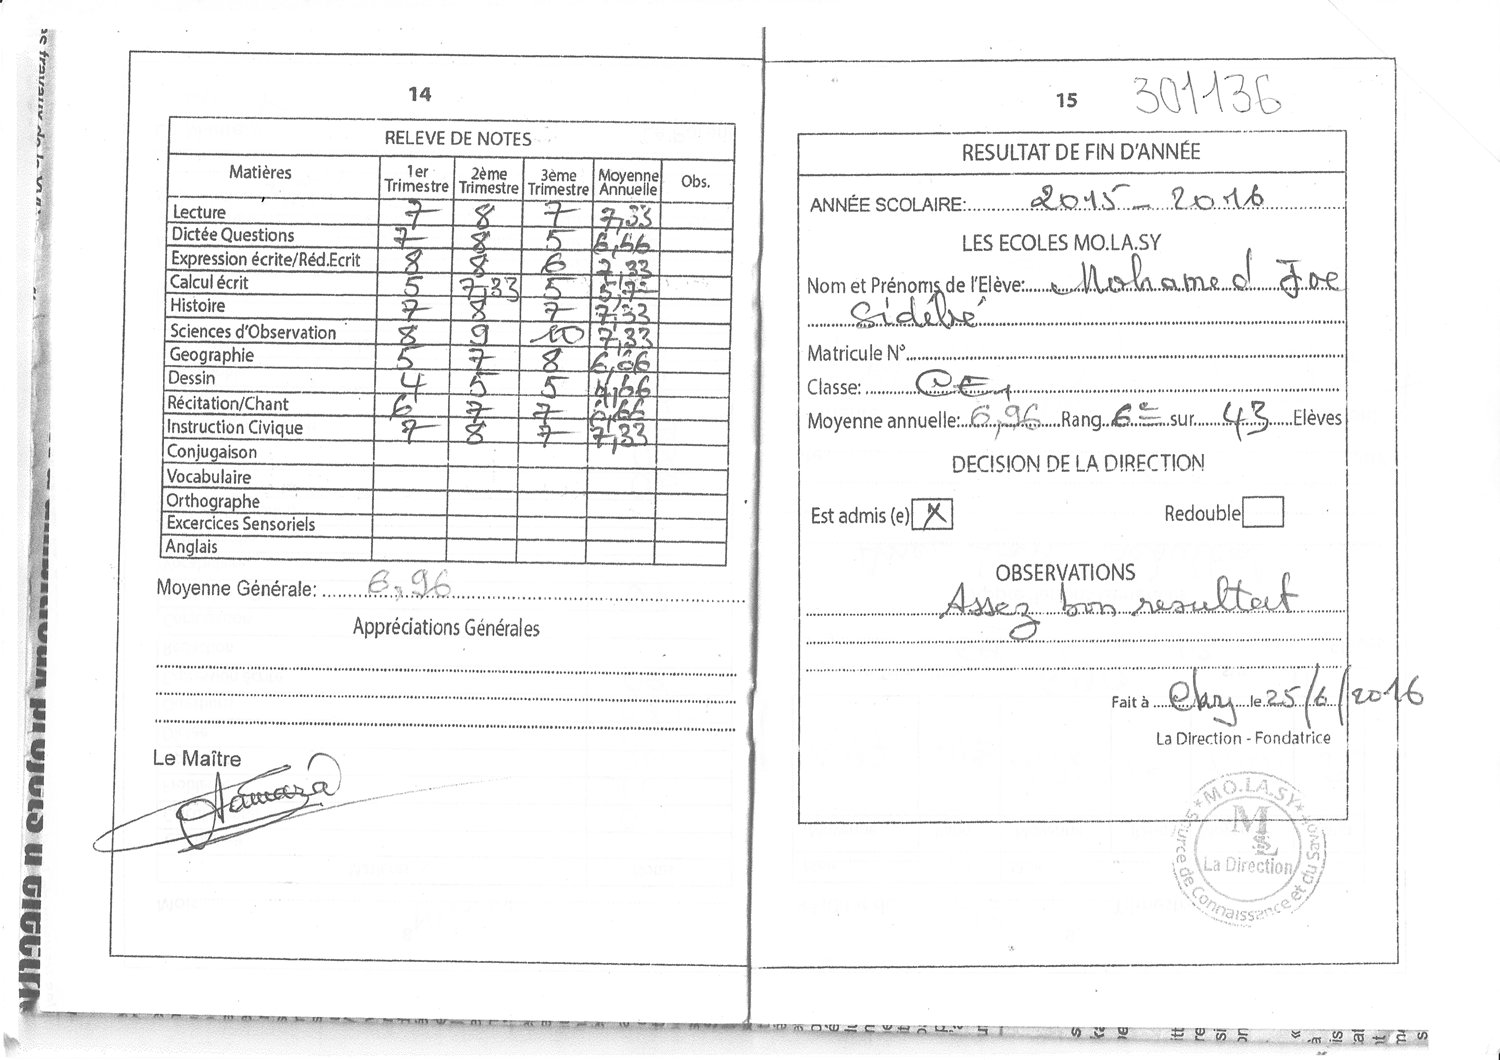 14
RELEVE DE NOTES
Matières 1er Trimestre 2ème Trimestre 3ème Trimestre Moyenne Annuelle Obs.
Lecture 7 8 7 7,33
Dictée Questions 7 8 5 6,66
Expression écrite/Réd.Ecrit 8 8 6 7,33
Calcul écrit 5 7,33 5 5,77
Histoire 7 8 7 7,33
Sciences d'Observation 8 9 10 7,33
Geographie 5 7 8 6,66
Dessin 4 5 5 4,66
Récitation/Chant 6 7 7 6,66
Instruction Civique 7 8 7 7,33
Conjugaison
Vocabulaire
Orthographe
Excercices Sensoriels
Anglais
Moyenne Générale: 6,96
Appréciations Générales
Le Maître
15 301136
RESULTAT DE FIN D'ANNÉE
ANNÉE SCOLAIRE: 2015 - 2016
LES ECOLES MO.LA.SY
Nom et Prénoms de l'Elève: Mohamed Joe
Sidébé
Matricule N°
Classe:
Moyenne annuelle: 6,96 Rang 6e sur 43 Elèves
DECISION DE LA DIRECTION
Est admis (e) X Redouble
OBSERVATIONS
Assez bon resultat
Fait à le 25/6/2016
La Direction - Fondatrice
* MO.LA.SY *
La Direction
Source de Connaissance et du Savoir